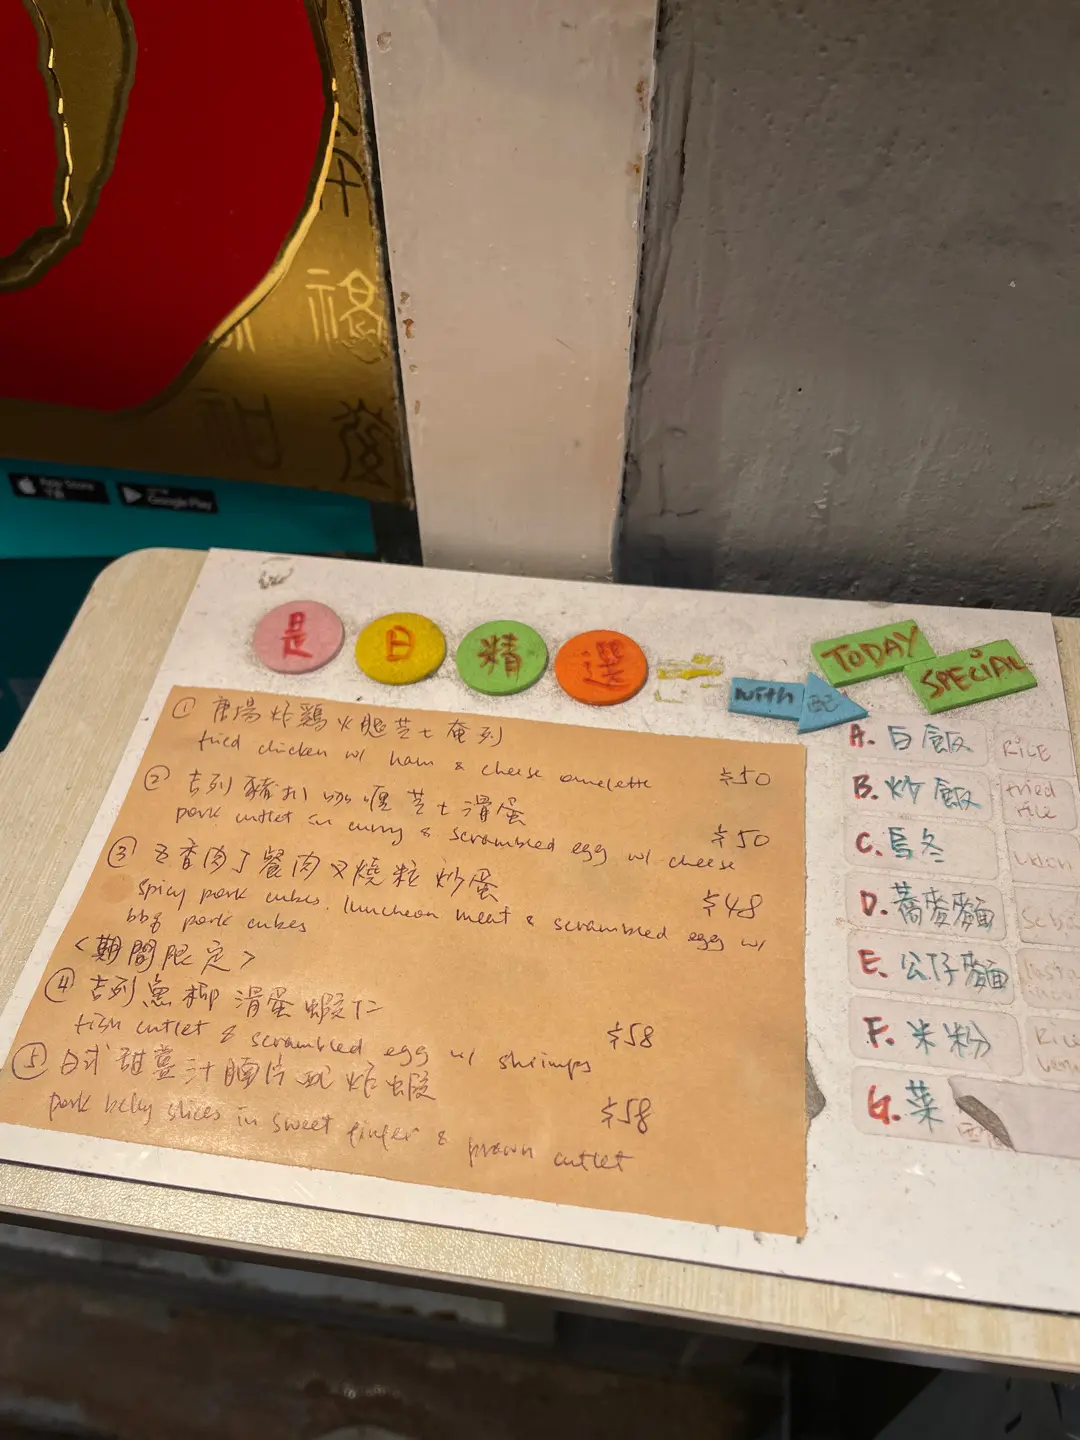 App Store
下載
Google Play
福
是日精選
TODAY
SPECIAL
with 配
① 唐揚炸鷄火腿芝士奄列
fried chicken w/ ham & cheese omelette $50
② 吉列豬扒咖喱芝士滑蛋
pork cutlet in curry & scrambled egg w/ cheese $50
③ 五香肉丁餐肉叉燒粒炒蛋 $48
spicy pork cubes. luncheon meat & scrambled egg w/
bbq pork cubes
<期間限定>
④ 吉列魚柳滑蛋蝦仁 $58
fish cutlet & scrambled egg w/ shrimps
⑤ 日式甜薑汁腩片配炸蝦 $58
pork belly slices in sweet ginger & prawn cutlet
A. 白飯 RICE
B. 炒飯 fried rice
C. 烏冬 udon
D. 蕎麥麵
E. 公仔麵
F. 米粉
G. 菜